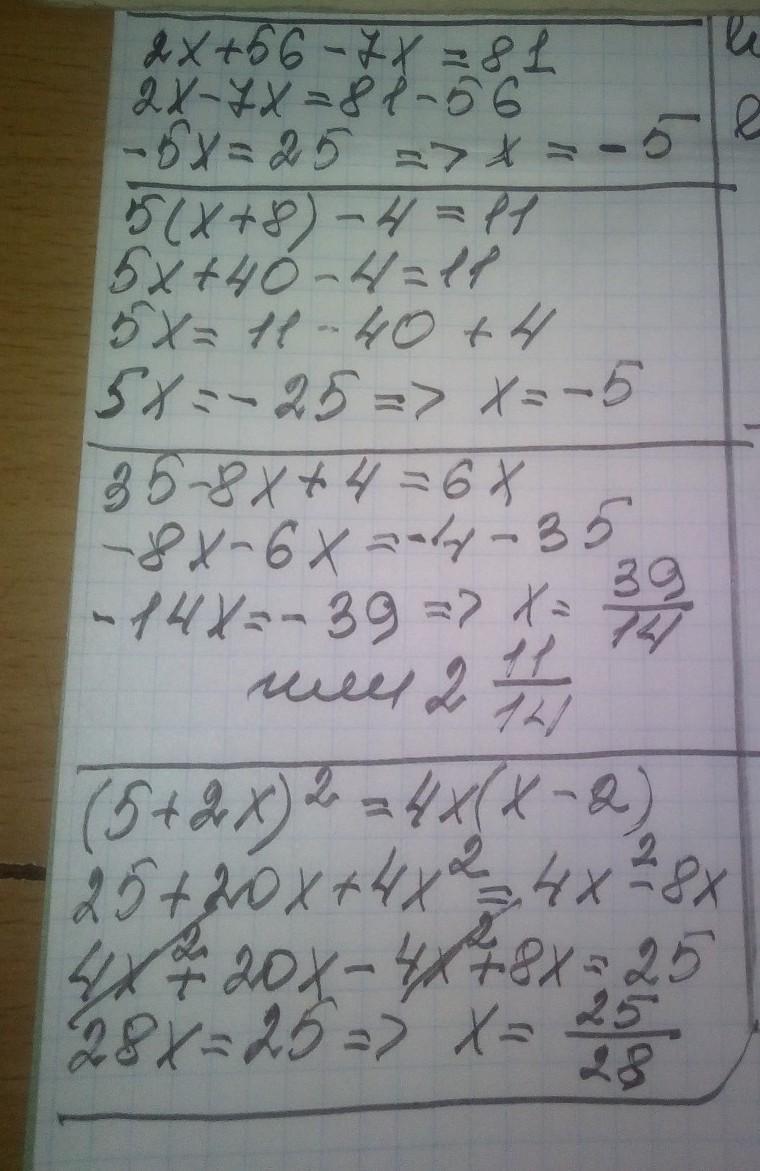 2x+56-7x=81
2x-7x=81-56
-5x=25 => x=-5
5(x+8)-4=11
5x+40-4=11
5x=11-40+4
5x=-25 => x=-5
35-8x+4=6x
-8x-6x=-4-35
-14x=-39 => x=39/14
или 2 11/14
(5+2x)²=4x(x-2)
25+20x+4x²=4x²-8x
4x²+20x-4x²+8x=25
28x=25 => x=25/28